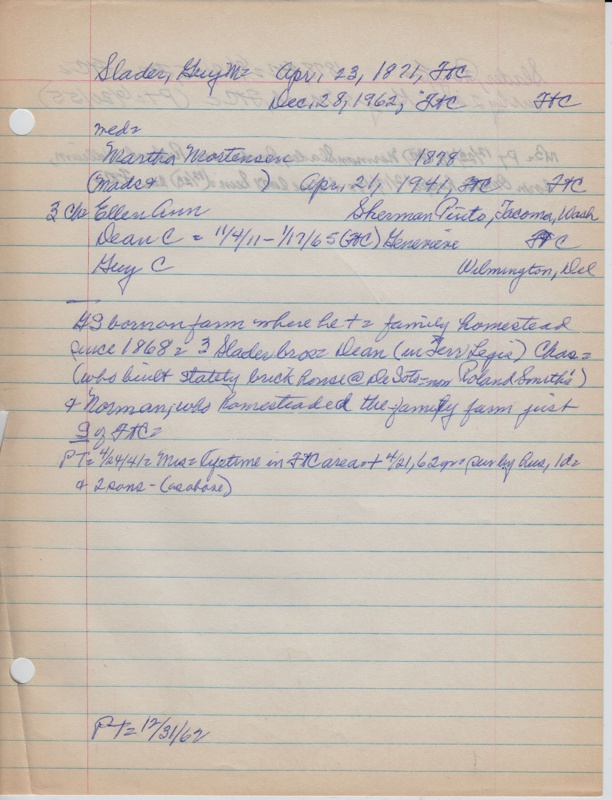 Slader, Guy M = Apr. 23, 1871, FtC
Dec. 28, 1962, FtC FtC
med =
Martha Mortensen 1878
(Mads + ) Apr. 21, 1941, FtC FtC
3 c/o Ellen Ann Sherman Pinto, Tacoma, Wash
Dean C = 11/4/11 - 1/17/65 (FtC) Genevieve FtC
Guy C Wilmington, Del
GS born on farm where he + = family homestead
since 1868 = 3 Slader bros = Dean (in Terr Legis) Chas =
(who built stately brick house @ DeSoto - now Roland Smith's)
+ Norman, who homesteaded the family farm just
S of FtC =
PT = 4/24/41 = Mrs = lifetime in FtC area + 4/21, 62 yrs = sur by hus, 1d =
+ 2 sons - (as above)
PT = 12/31/62